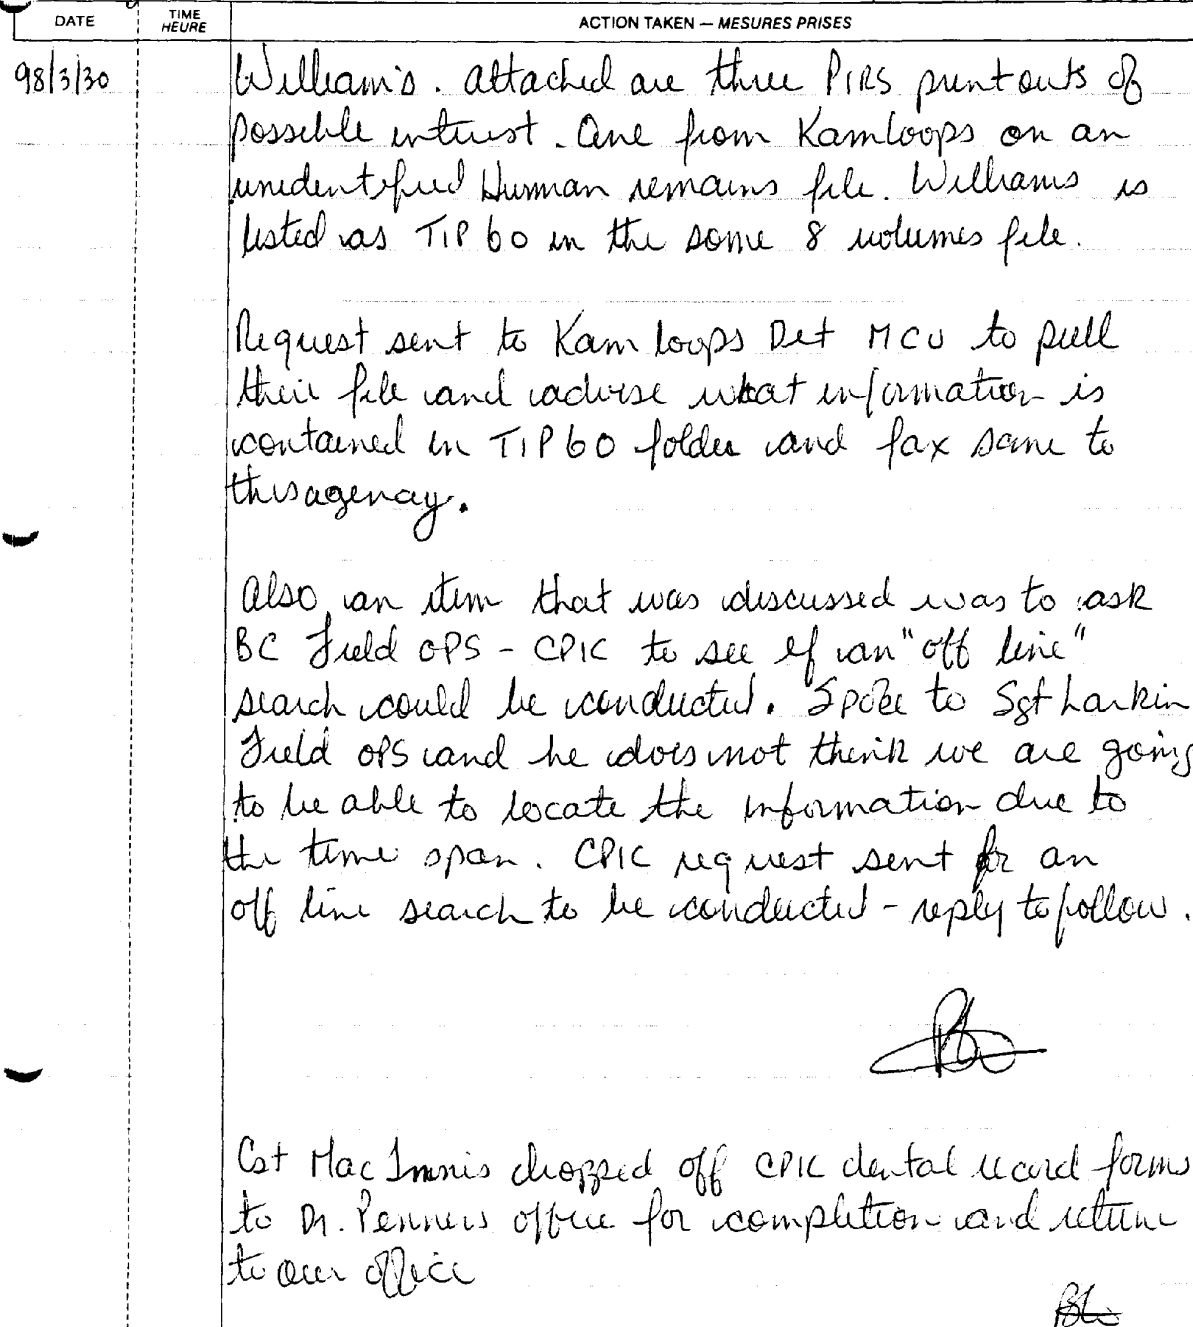 DATE TIME HEURE ACTION TAKEN — MESURES PRISES
98/3/30 William's. Attached are three PIRS printouts of
possible interest. One from Kamloops on an
unidentified Human remains file. Williams is
listed as TIP 60 in the some 8 volumes file.
Request sent to Kamloops Det MCU to pull
their file and advise what information is
contained in TIP 60 folder and fax same to
this agency.
Also, an item that was discussed was to ask
BC Field OPS - CPIC to see if an "off line"
search could be conducted. Spoke to Sgt Larkin
Field OPS and he does not think we are going
to be able to locate the information due to
the time span. CPIC request sent for an
off line search to be conducted - reply to follow.
Cst MacInnis dropped off CPIC dental record forms
to Dr. Penners office for completion and return
to our office